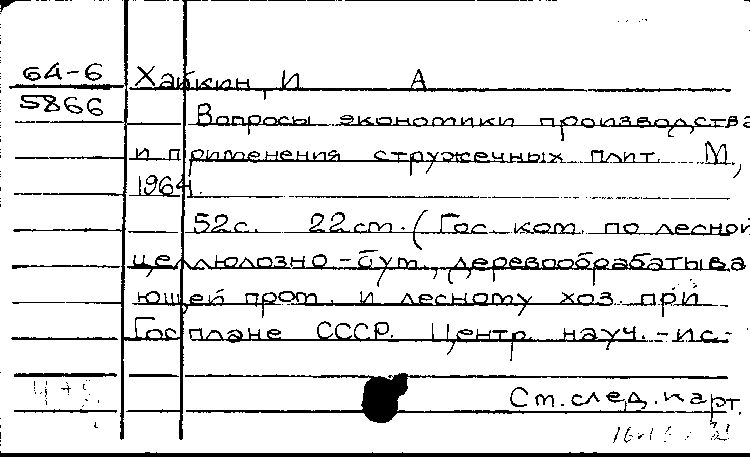 64-6 Хайкин, И А
5866
Вопросы экономики производства
и применения стружечных плит. М.,
1964.
52с. 22см. (Гос. ком. по лесной
целлюлозно-бум., деревообрабатыва
ющей пром. и лесному хоз. при
Госплане СССР. Центр. науч.-ис-
Ст. след. карт.